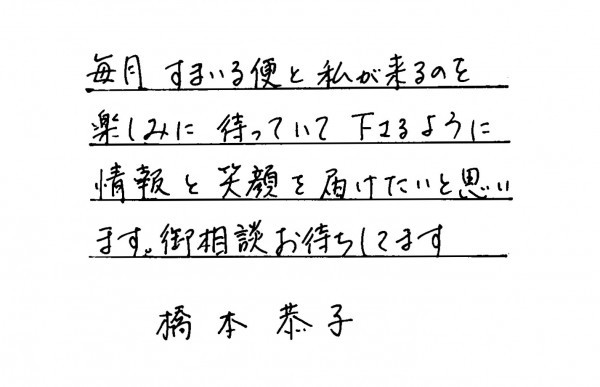 毎月 すまいる便と私が来るのを
楽しみに 待っていて下さるように
情報と笑顔を届けたいと思い
ます。御相談お待ちしてます
橋本恭子